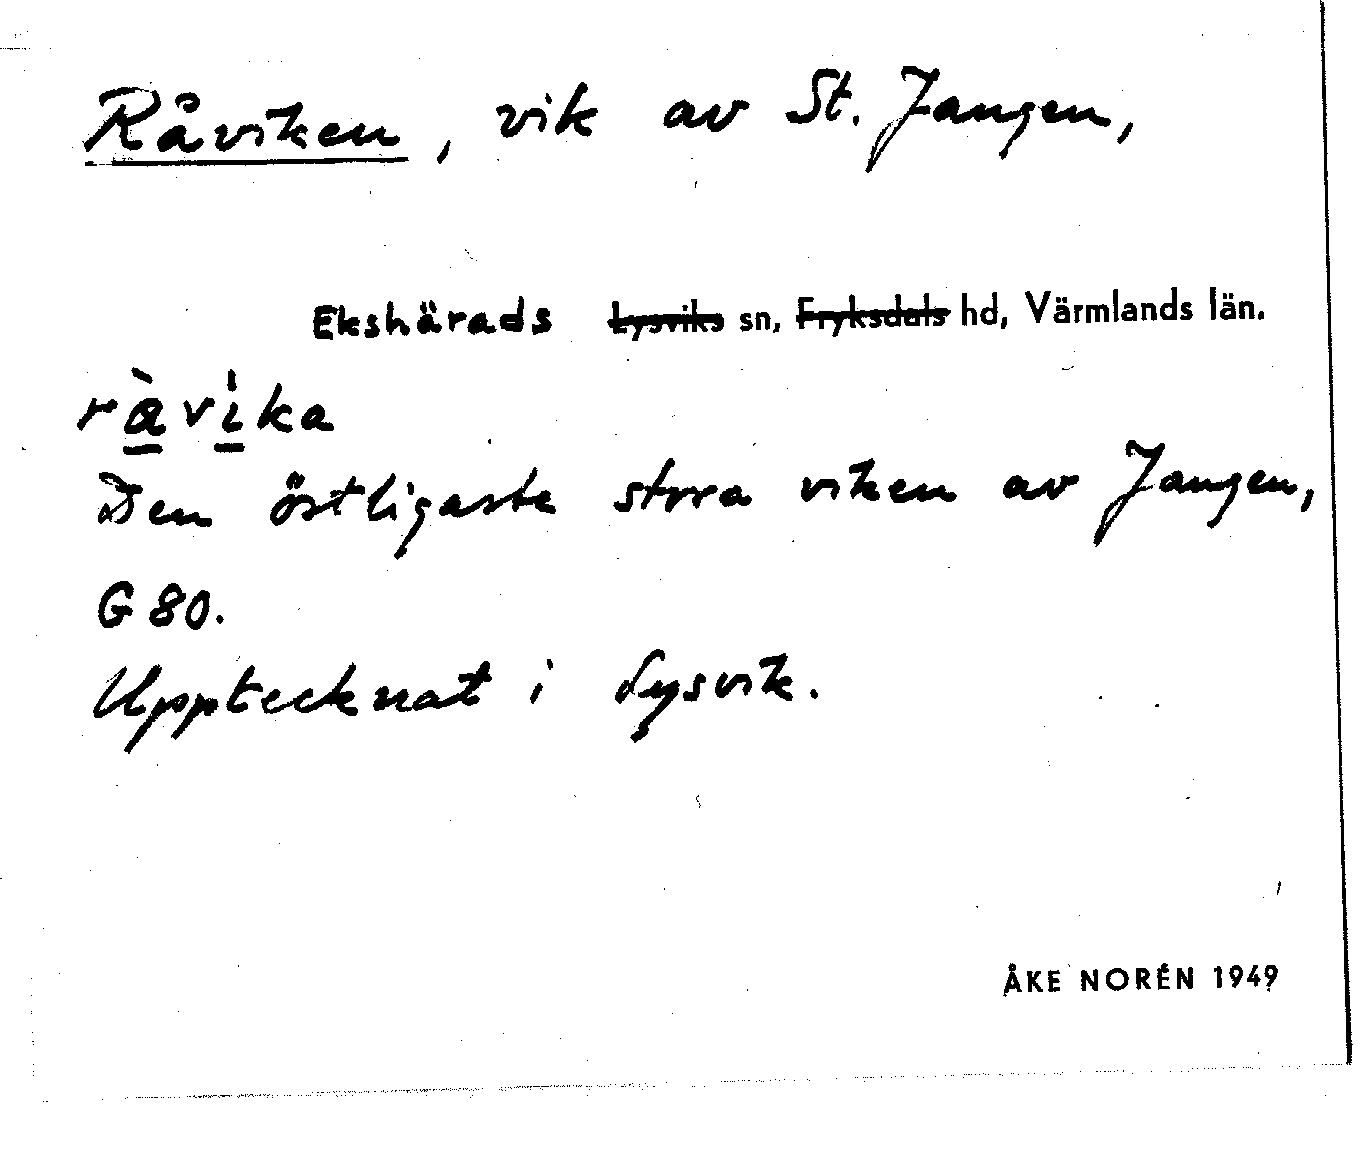 Råviken, vik av St. Jangen,
Ekshärads Lysviks sn, Fryksdals hd, Värmlands län.
ràvi̍ka
Den östligaste stora viken av Jangen,
G 80.
Upptecknat i Lysvik.
ÅKE NORÉN 1949